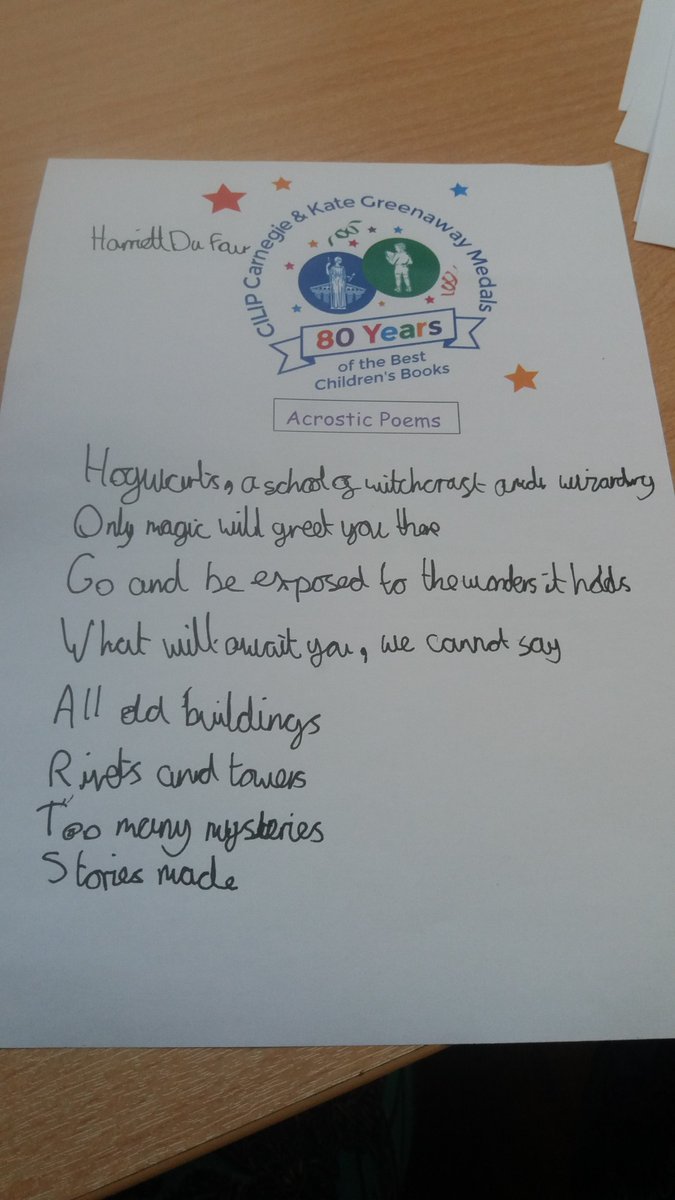 Harriett Du Feu
CILIP Carnegie & Kate Greenaway Medals
80 Years
of the Best
Children's Books
Acrostic Poems
Hogwarts, a school of witchcraft and wizardry
Only magic will greet you there
Go and be exposed to the wonders it holds
What will await you, we cannot say
All old buildings
Rivets and towers
Too many mysteries
Stories made